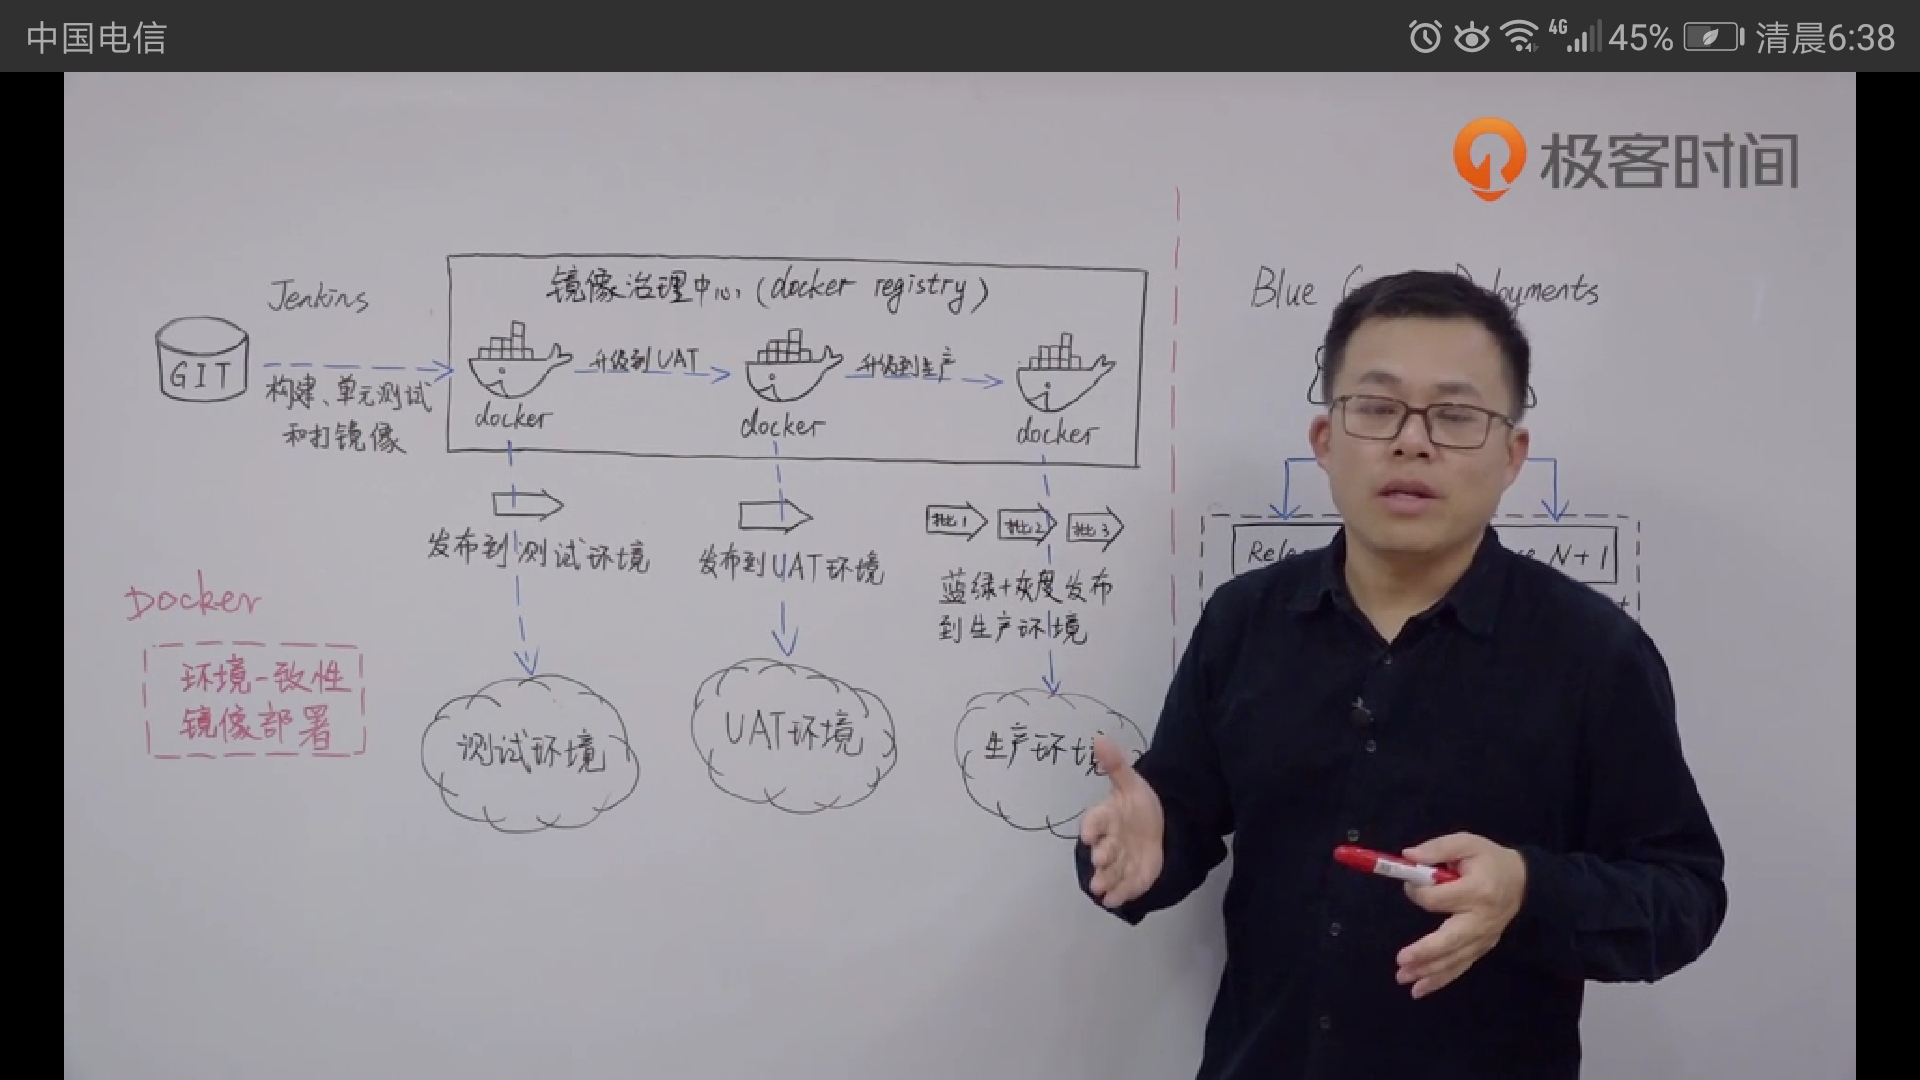 中国电信
4G 45% 清晨6:38
极客时间
Jenkins
GIT
构建、单元测试
和打镜像
镜像治理中心,(docker registry)
升级到UAT
升级到生产
docker
docker
docker
发布到测试环境
发布到UAT环境
批1
批2
批3
蓝绿+灰度发布
到生产环境
测试环境
UAT环境
生产环境
Docker
环境一致性
镜像部署
Blue
N+1